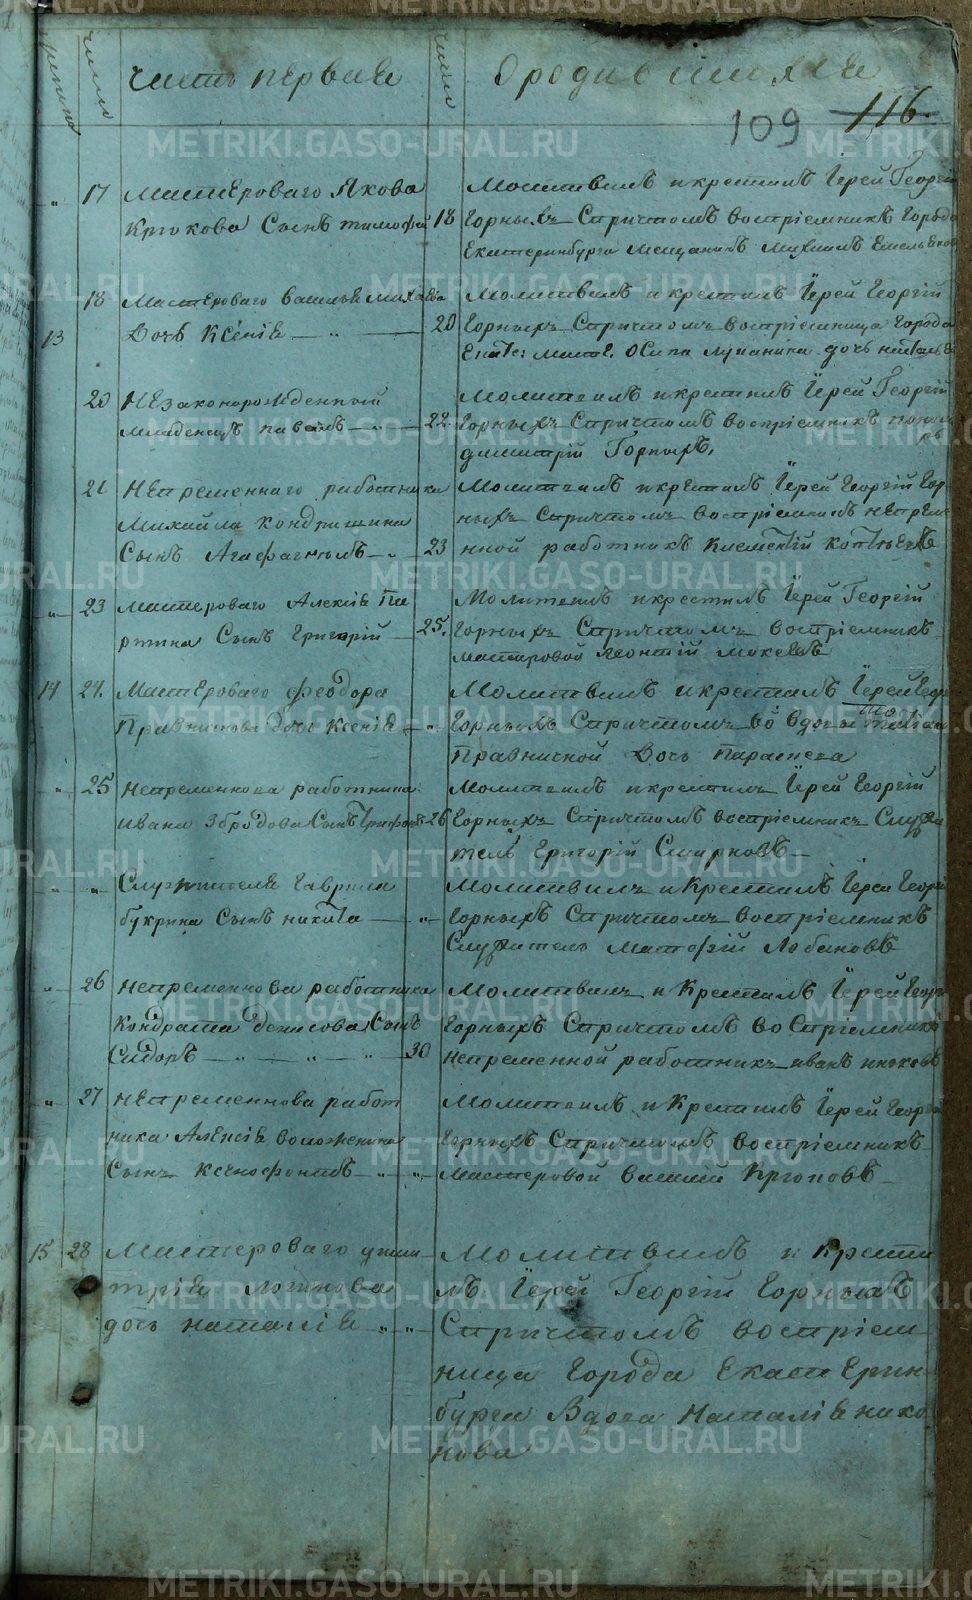 часть первая
О родившихся
109 116.
17 Мастероваго Якова
Крюкова Сынъ тимофей 18
Молитвилъ и крестилъ Їерей Георгий
Горныхъ Спричтомъ востріемникъ Города
Екатеринбурга Мещанинъ Михаилъ Емельянов
13 18 Мастероваго василья михаева
Дочь Ксенія 20
Молитвилъ и крестилъ Їерей Георгій
Горныхъ Спричтомъ востріемница Города
Екате: масте. Осипа дочь наталья
20 Незаконорожденный
младенецъ павелъ 22
Молитвилъ и крестилъ Їерей Георгій
Горныхъ Спричтомъ воспріемникъ
димитрій Горныхъ,
21 Непременнаго работника
Михайла кондрашина
Сынъ 23
Молитвилъ и крестилъ Їерей Георгій Гор-
ныхъ Спричтомъ воспріемникъ непреме-
нной работникъ Клементій
23 мастероваго Алексія
Сынъ Григорій 25.
Молитвилъ и крестилъ Їерей Георгій
Горныхъ Спричтомъ востріемникъ
мастеровой Леонтій мокеевъ
14 24. Мастероваго феодора
дочь Ксенія
Молитвилъ и крестилъ Їерей Георг
Горныхъ Спричтомъ во вдовы
Правничной Дочь Параскева
25 непременнова работника
ивана Збродова Сынъ Трифонъ 26
Молитвилъ и крестилъ Їерей Георгій
Горныхъ Спричтомъ востріемникъ Служи
тель Григорій Смирновъ
Служителя Гаврила
букрина Сынъ никита
Молитвилъ и Крестилъ Їерей Георгі
Горныхъ Спричтомъ востріемникъ
Служитель Матфій Лобановъ
26 непременнова работника
Кондрата денисова Сынъ
Сидоръ 30
Молитвилъ и Крестилъ Їерей Георги
Горныхъ Спричтомъ во Стріемникъ
непременной работникъ иванъ
27 непременнова работ
ника Алексія воложенина
Сынъ Ксенофонтъ
Молитвилъ и Крестилъ Їерей Георгій
Горныхъ Спричтомъ востріемникъ
мастеровой василій Крюковъ
15 28 Мастероваго дими
трія логинова
дочь наталія
Молитвилъ и крести
лъ Їерей Георгій Горныхъ
Спричтомъ востріем
ница Города Екатерин
бурга Вдова Наталія нико
нова